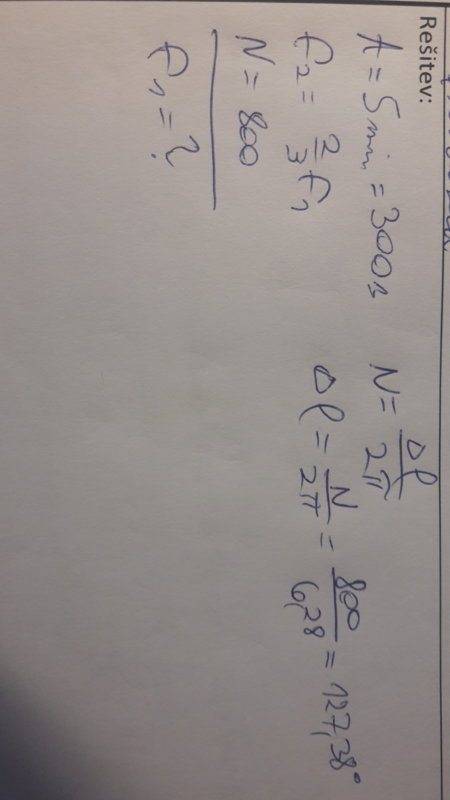 Rešitev:
t = 5 min = 300 s
f₂ = 2/3 f₁
N = 800
f₁ = ?
N = Δφ/2π
Δφ = N/2π = 800/6,28 = 127,38°